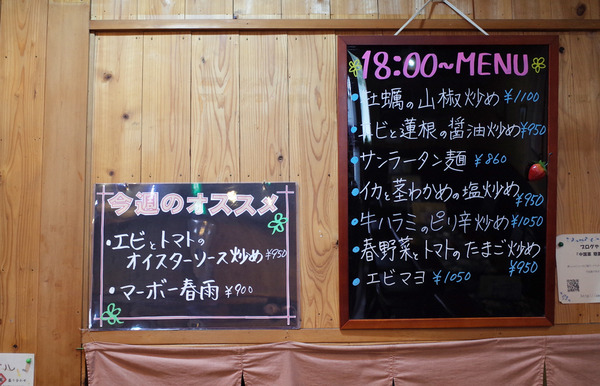 今週のオススメ
・エビとトマトの
オイスターソース炒め ¥950
・マーボー春雨 ¥900
18:00~MENU
・牡蠣の山椒炒め ¥1100
・エビと蓮根の醤油炒め ¥950
・サンラータン麺 ¥860
・イカと茎わかめの塩炒め ¥950
・牛ハラミのピリ辛炒め ¥1050
・春野菜とトマトのたまご炒め ¥950
・エビマヨ ¥1050
ブログや